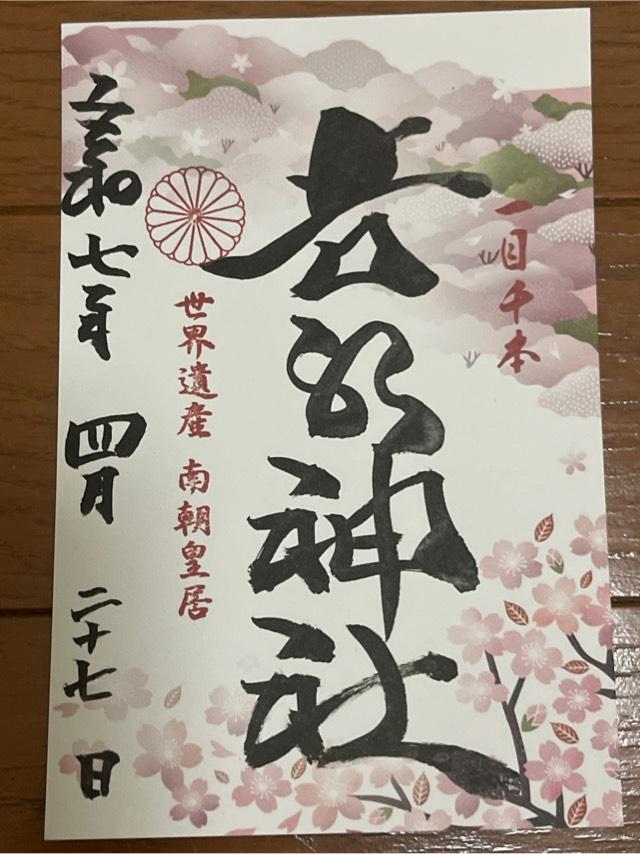 一目千本
吉水神社
世界遺産 南朝皇居
令和七年 四月 二十七日